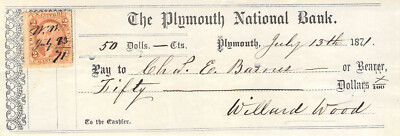 The Plymouth National Bank.
50 Dolls. — Cts. Plymouth, July 13th 1871.
W. W.
July 13
71
Pay to Chs. E. Barnes or Bearer,
Fifty Dollars x/100
Willard Wood
To the Cashier.